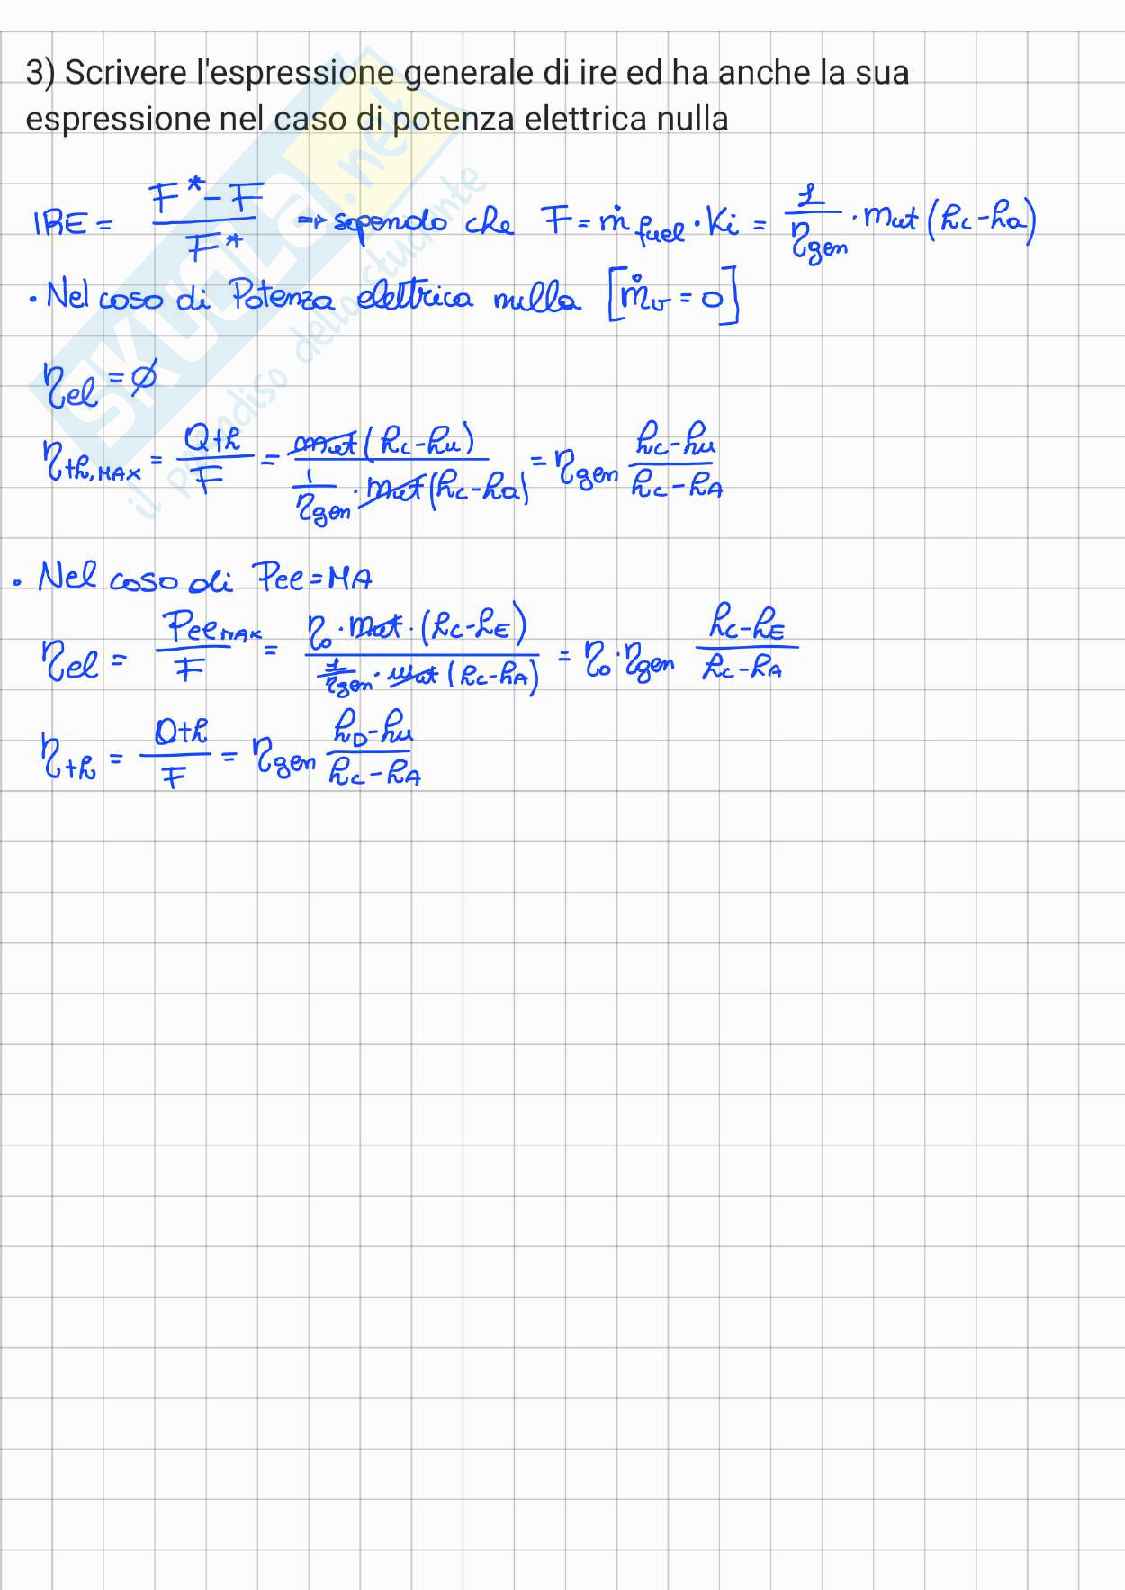 3) Scrivere l'espressione generale di ire ed ha anche la sua
espressione nel caso di potenza elettrica nulla
IRE = (F* - F) / F* → sapendo che F = ṁ fuel · Ki = 1/ηgen · mut (hc - ha)
· Nel caso di Potenza elettrica nulla [ṁv = 0]
ηel = ∅
ηth,MAX = Qth / F = mut (hc - hu) / (1/ηgen · mut (hc - ha)) = ηgen (hc - hu) / (hc - hA)
· Nel caso di Pee = MA
ηel = PeeMAX / F = η0 · mut · (hc - hE) / (1/ηgen · mut (hc - hA)) = η0 · ηgen (hc - hE) / (hc - hA)
ηth = Qth / F = ηgen (hD - hu) / (hc - hA)
SKUOLA.net
il paradiso dello studente